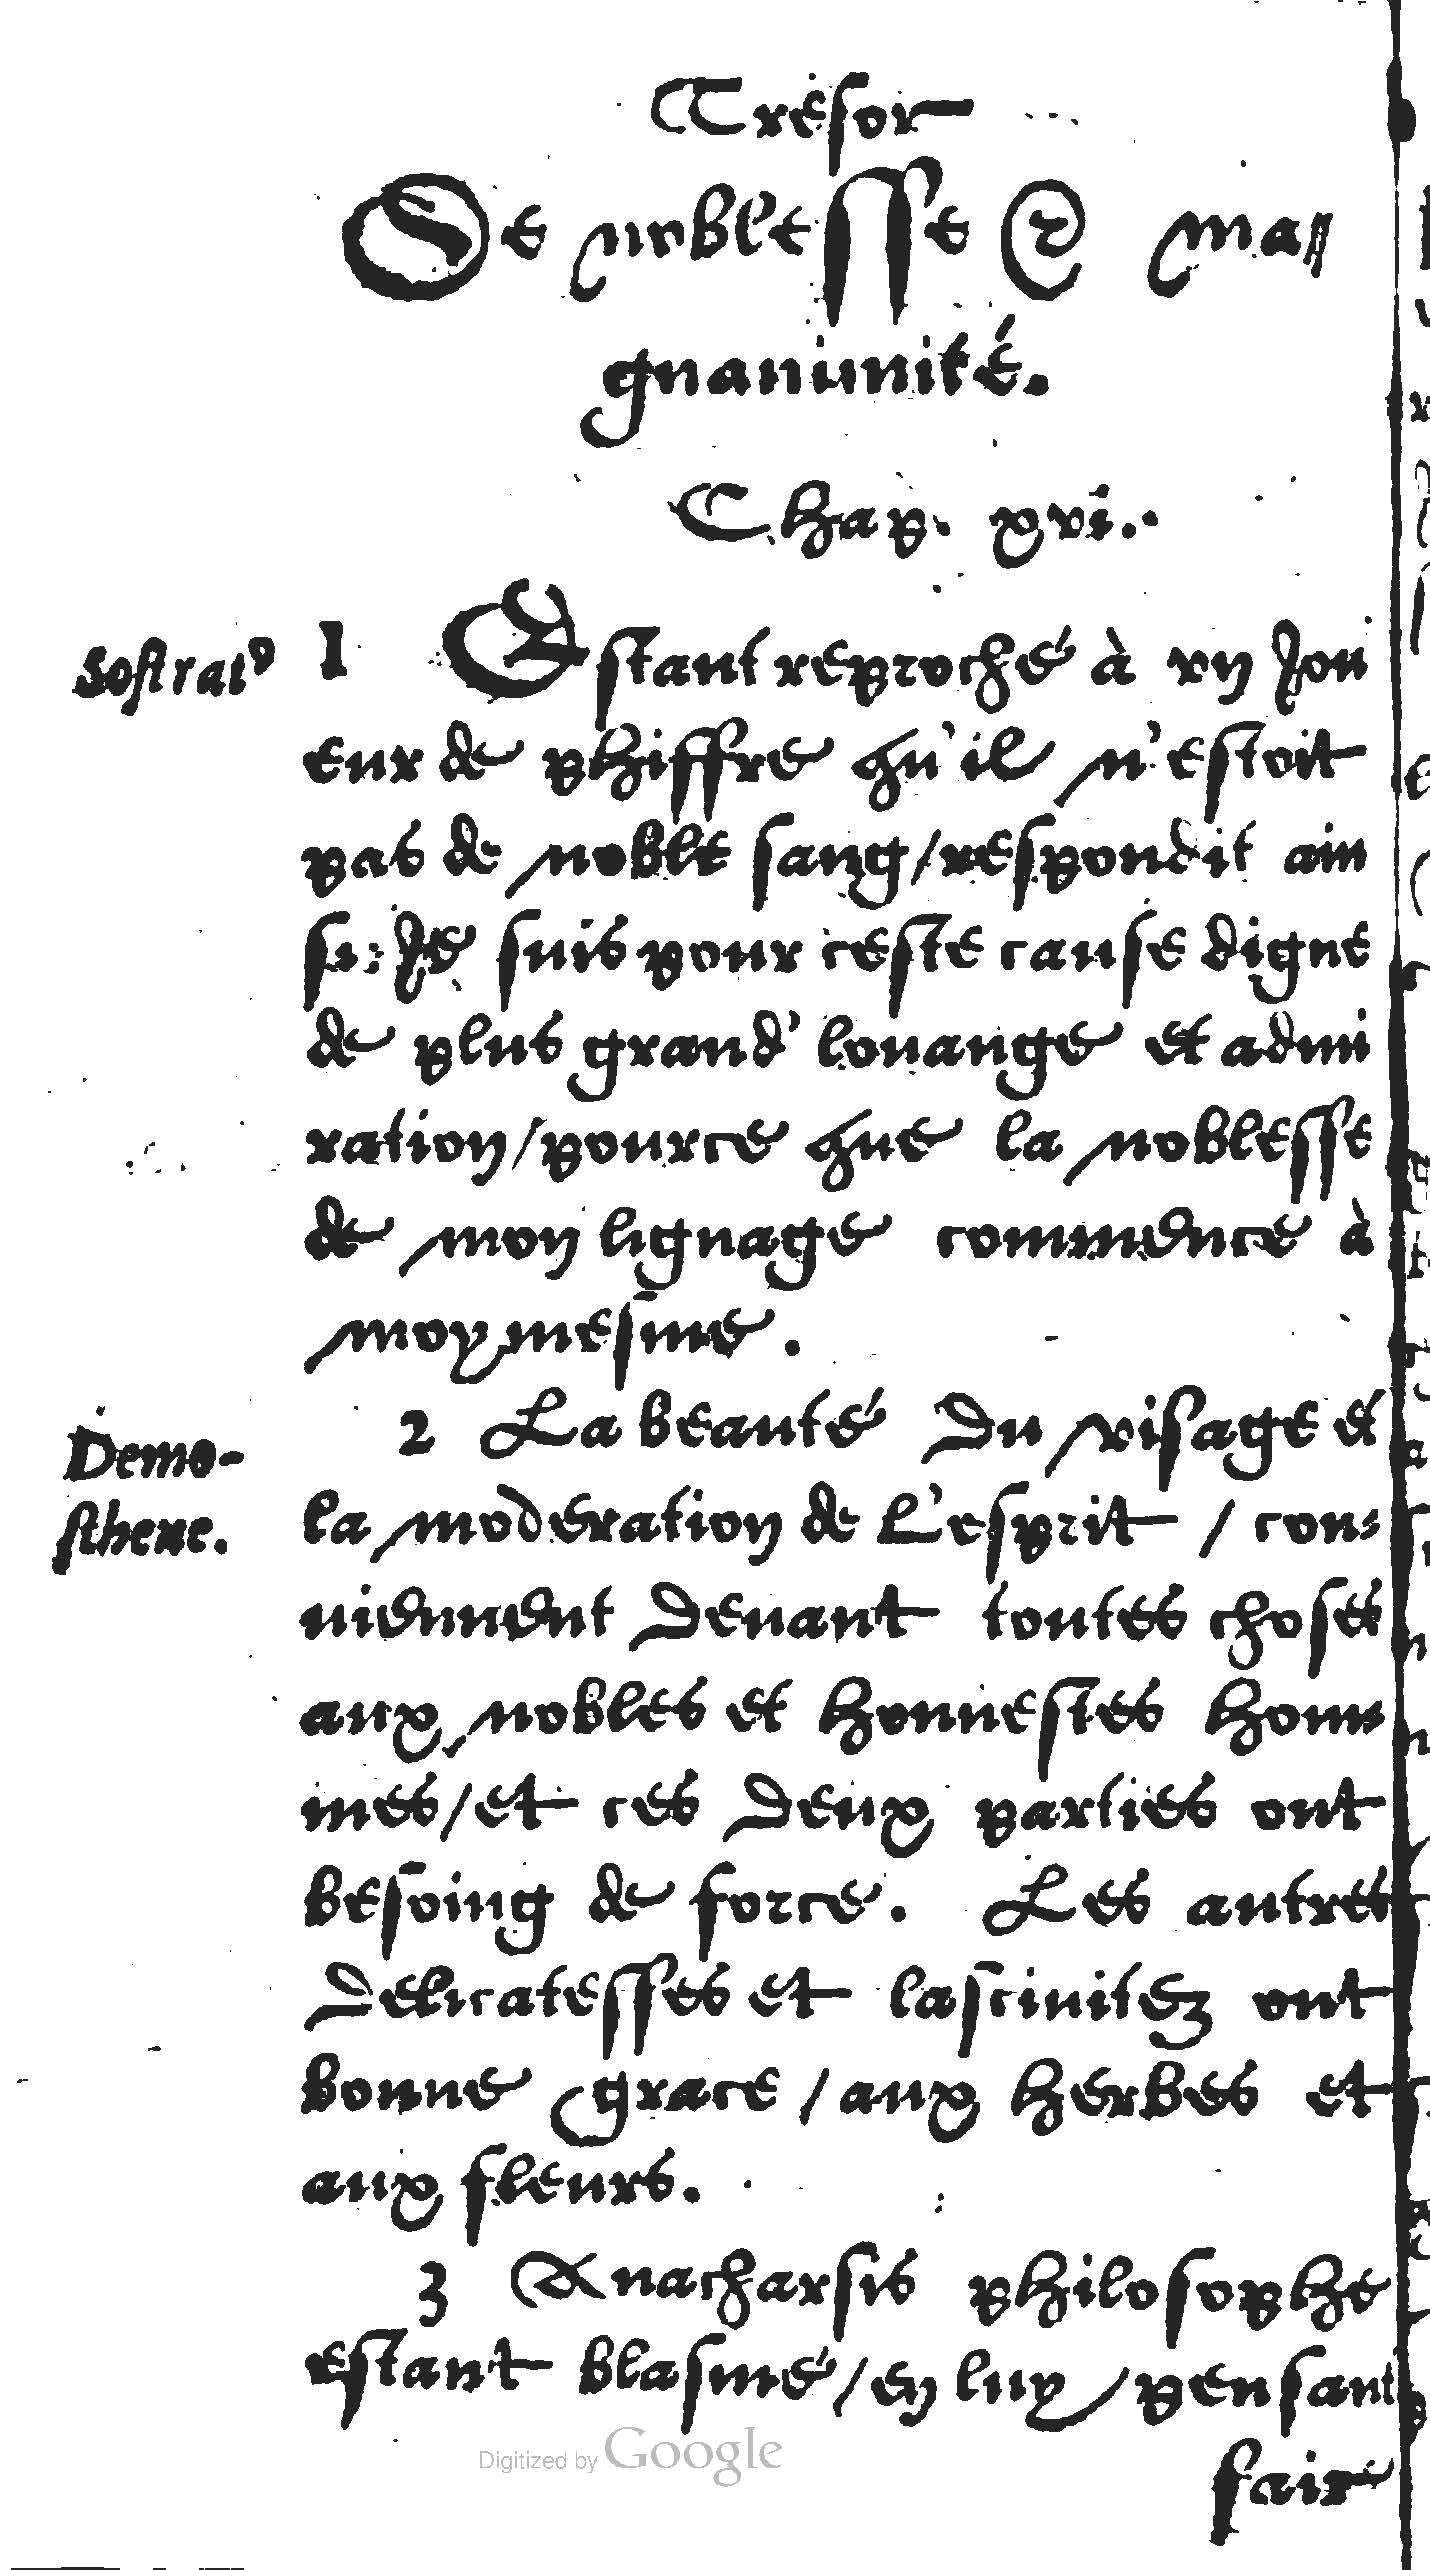 Tresor
De noblesse & ma⸗
gnanimité.
Chap. xvi.
Sostrat⁹ 1 Estant reproché à vn Jou
eur de phiffre qu'il n'estoit
pas de noble sang/respondit ain
si: Je suis pour ceste cause digne
de plus grand' louange et admi
ration/pource que la noblesse
de mon lignage commence à
moymesme.
Demo-
sthene.
2 La beauté du visage et
la moderation de l'esprit / con⸗
uiennent deuant toutes choses
aux nobles et honnestes hom⸗
mes/et ces deux parties ont
besoing de force. Les autres
delicatesses et lasciuitez ont
bonne grace / aux herbes et
aux fleurs.
3 Anacharsis philosophe
estant blasmé/en luy pensant
fair
Digitized by Google